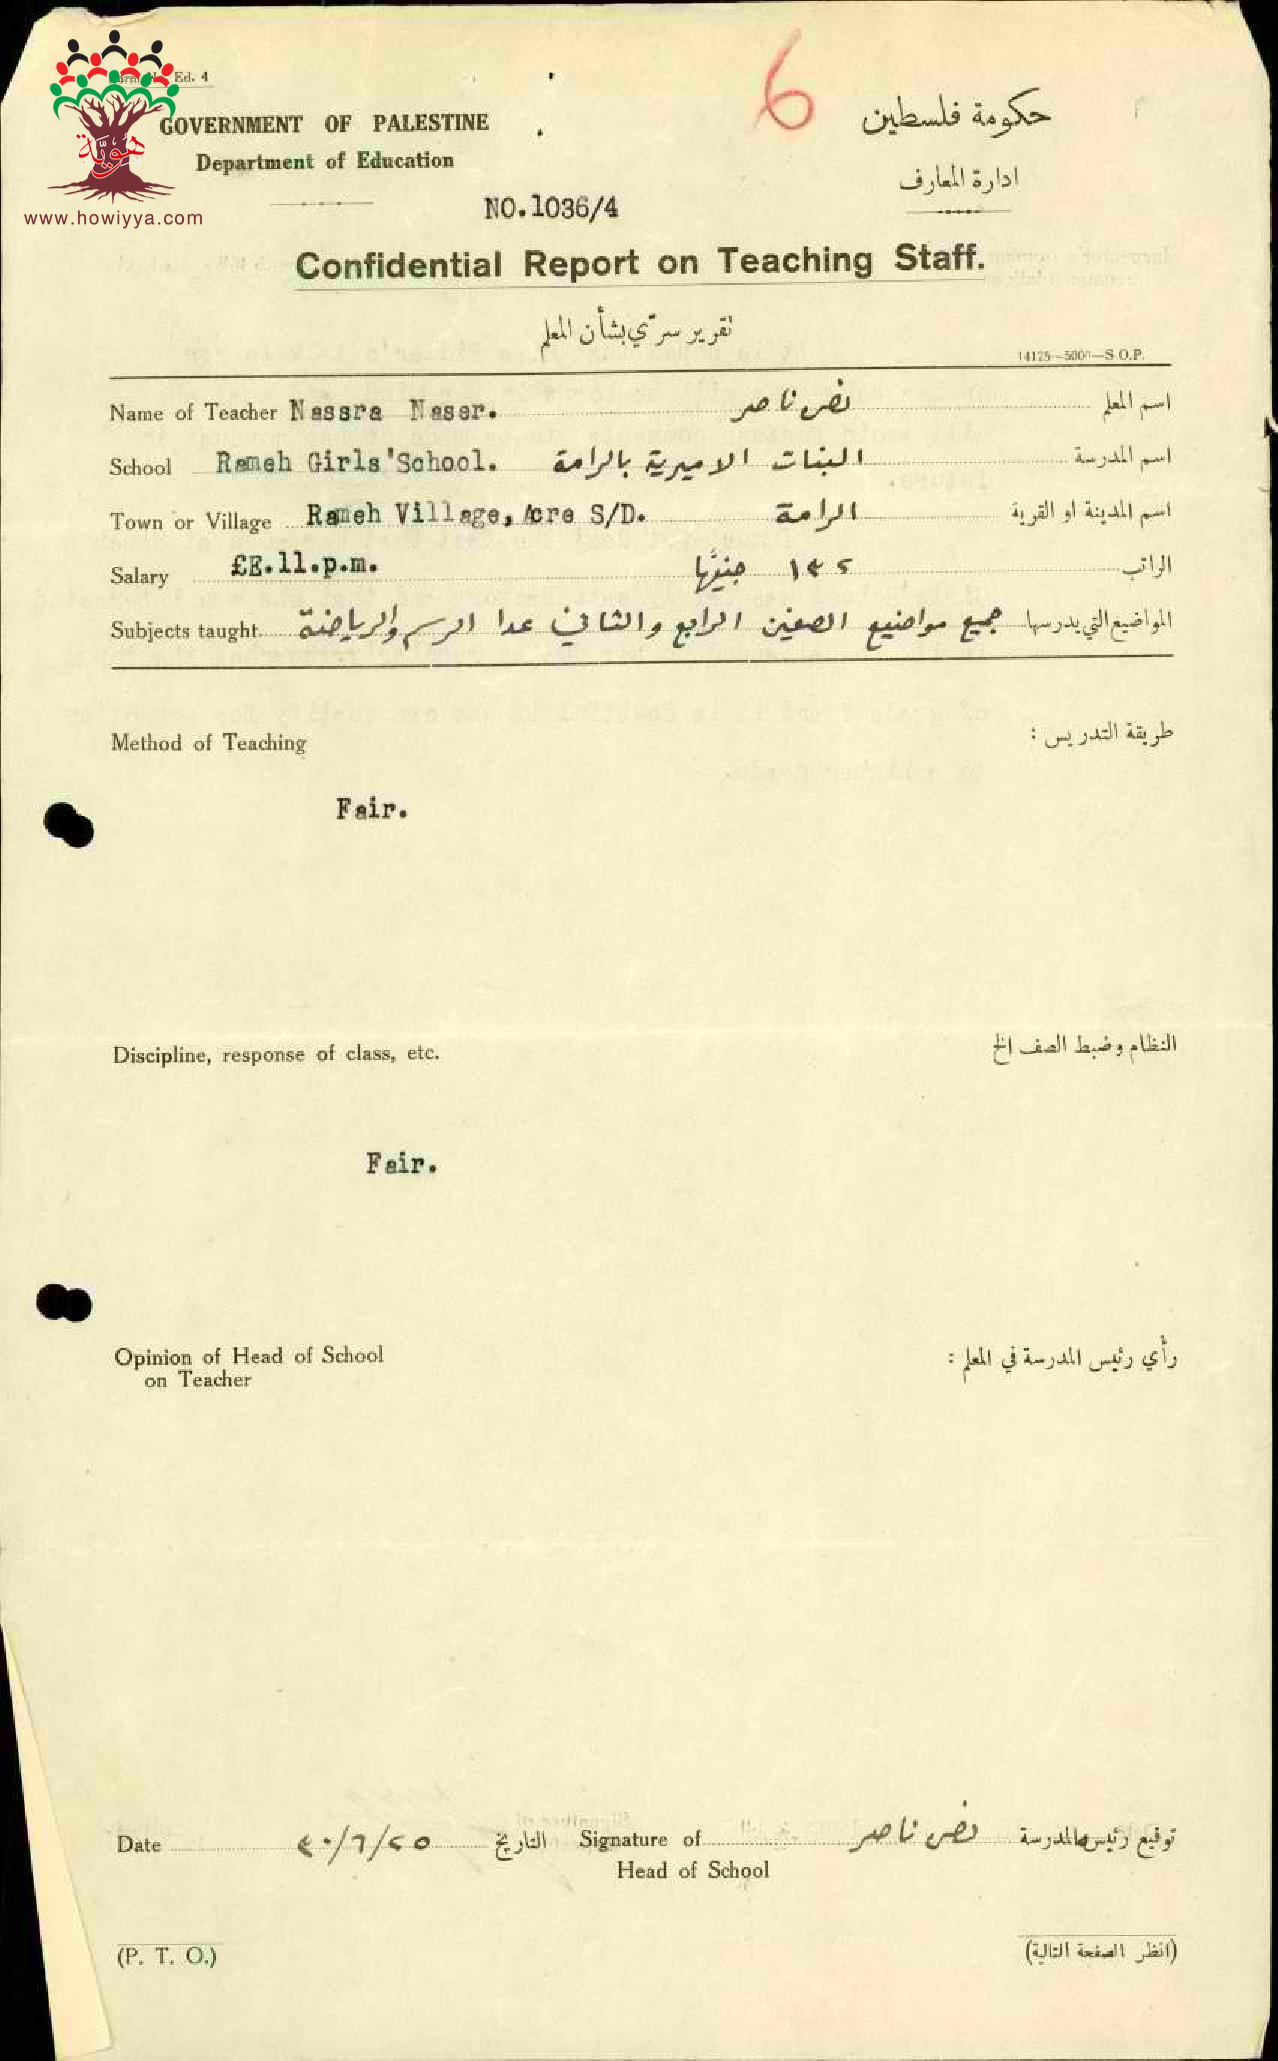 Ed. 4
6
GOVERNMENT OF PALESTINE
حكومة فلسطين
Department of Education
ادارة المعارف
هوية
www.howiyya.com
NO.1036/4
Confidential Report on Teaching Staff.
تقرير سري بشأن المعلم
14125—5000—S.O.P.
Name of Teacher Nassra Naser. ناصر اسم المعلم
School Rameh Girls'School. البنات الاميرية بالرامة اسم المدرسة
Town or Village Rameh Village, Acre S/D. الرامة اسم المدينة او القرية
Salary £E.11.p.m. ١٣٢ جنيهًا الراتب
Subjects taught جميع مواضيع الصفين الرابع والثاني عدا الرسم والرياضة المواضيع التي يدرسها
Method of Teaching طريقة التدريس :
Fair.
Discipline, response of class, etc. النظام وضبط الصف الخ
Fair.
Opinion of Head of School رأي رئيس المدرسة في المعلم :
on Teacher
Date التاريخ Signature of ناصر توقيع رئيس المدرسة
Head of School
(P. T. O.) (انظر الصفحة التالية)